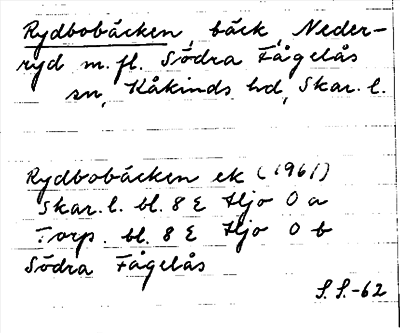 Rydbobäcken, bäck, Neder-
ryd m. fl. Södra Fågelås
sn, Kåkinds hd, Skar. l.
Rydbobäcken ek (1961)
Skar. l. bl. 8 E Hjo 0 a
Torp. bl. 8 E Hjo 0 b
Södra Fågelås
S. S.-62